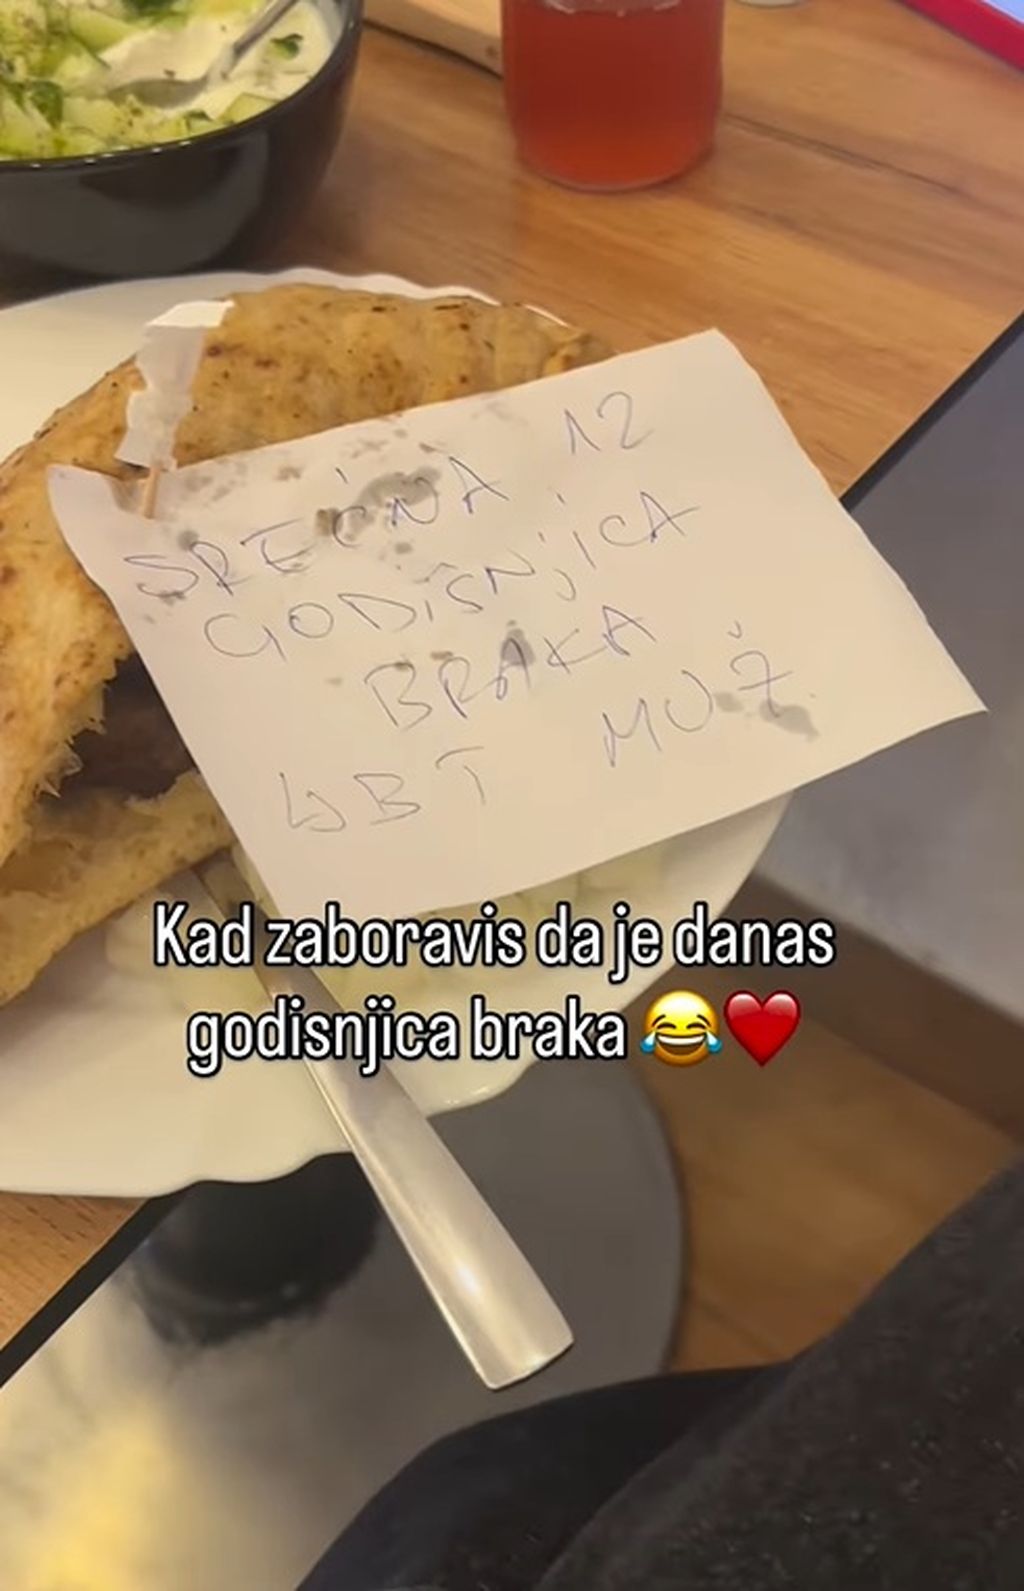 SREĆNA 12
GODIŠNJICA
BRAKA
WBT MUŽ
Kad zaboravis da je danas
godisnjica braka 😂❤️